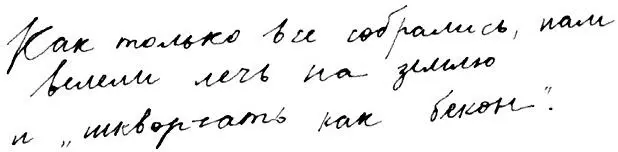 Как только все собрались, нам
велели лечь на землю
и „шкворчать как бекон".